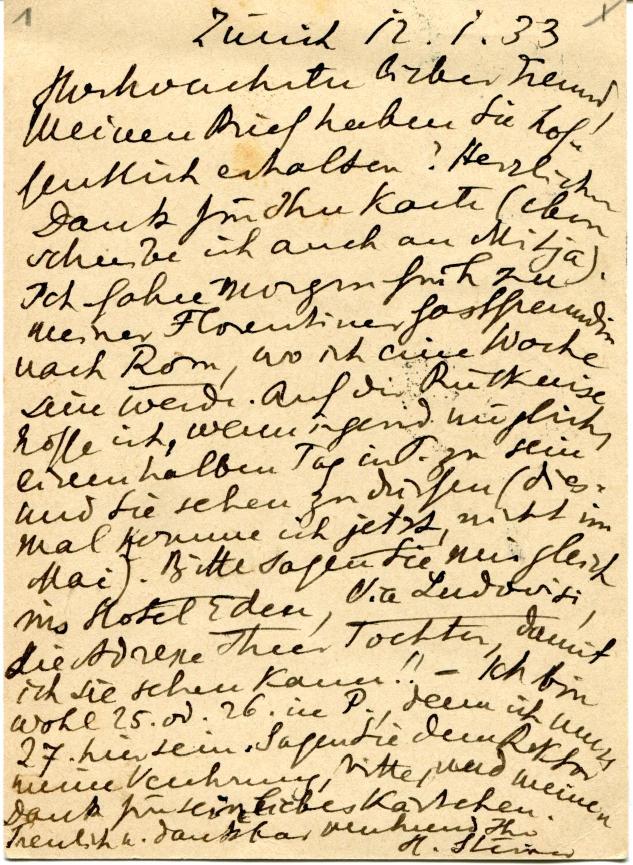 Zürich 12. I. 33
Lieber Freund!
Meinen Brief haben Sie hof-
fentlich erhalten? Herzlichen
Dank für Ihre Karte (eben
schreibe ich auch an Mitja).
Ich fahre morgen früh zu
meiner Florentiner Gastfreundin
nach Rom, wo ich eine Woche
sein werde. Auf der Rückreise
hoffe ich, wenn irgend möglich,
einen halben Tag in P. zu sein
und Sie sehen zu dürfen (dies-
mal komme ich jetzt, nicht im
Mai). Bitte sagen Sie mir gleich
ins Hotel Eden, Via Ludovisi,
die Adresse Ihrer Tochter, damit
ich sie sehen kann!! – Ich bin
wohl 25. od. 26. in P., denn ich muss
27. hier sein. Sagen Sie dem Rektor
meine Verehrung, bitte, und meinen
Dank für sein liebes Kärtchen.
Treulich u. dankbar verehrend Ihr
H.